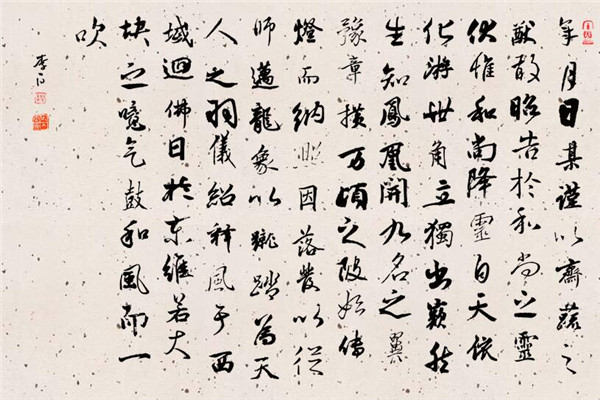 年月日某謹以齋蔬之
獻敢昭告於和尚之靈
伏惟和尚降靈自天依
化游世角立獨出嶷然
生知鳳凰開九名之翼
豫章横万頃之陂始傳
燈而納照因落髮以從
師邁龍象以蹴踏為天
人之羽儀紹釋風于西
域迴佛日於東維若大
块之噫气鼓和風而一
吹
李白